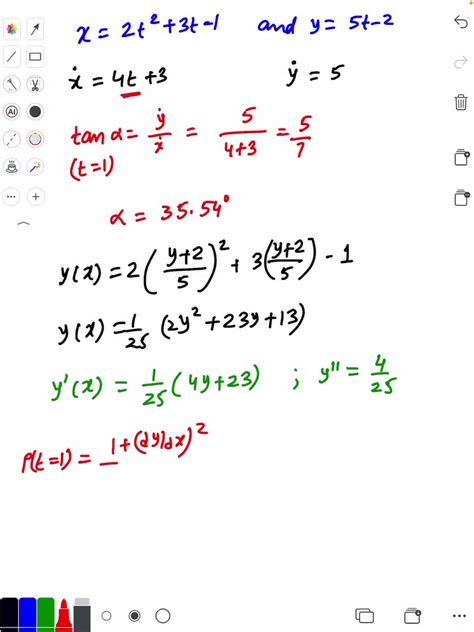 x = 2t² + 3t - 1 and y = 5t - 2
ẋ = 4t + 3 ẏ = 5
tan α = ẏ/ẋ = 5/(4+3) = 5/7
(t=1)
α = 35.54°
y(x) = 2((y+2)/5)² + 3((y+2)/5) - 1
y(x) = 1/25 (2y² + 23y + 13)
y'(x) = 1/25 (4y + 23) ; y'' = 4/25
ρ(t=1) = 1+(dy/dx)²